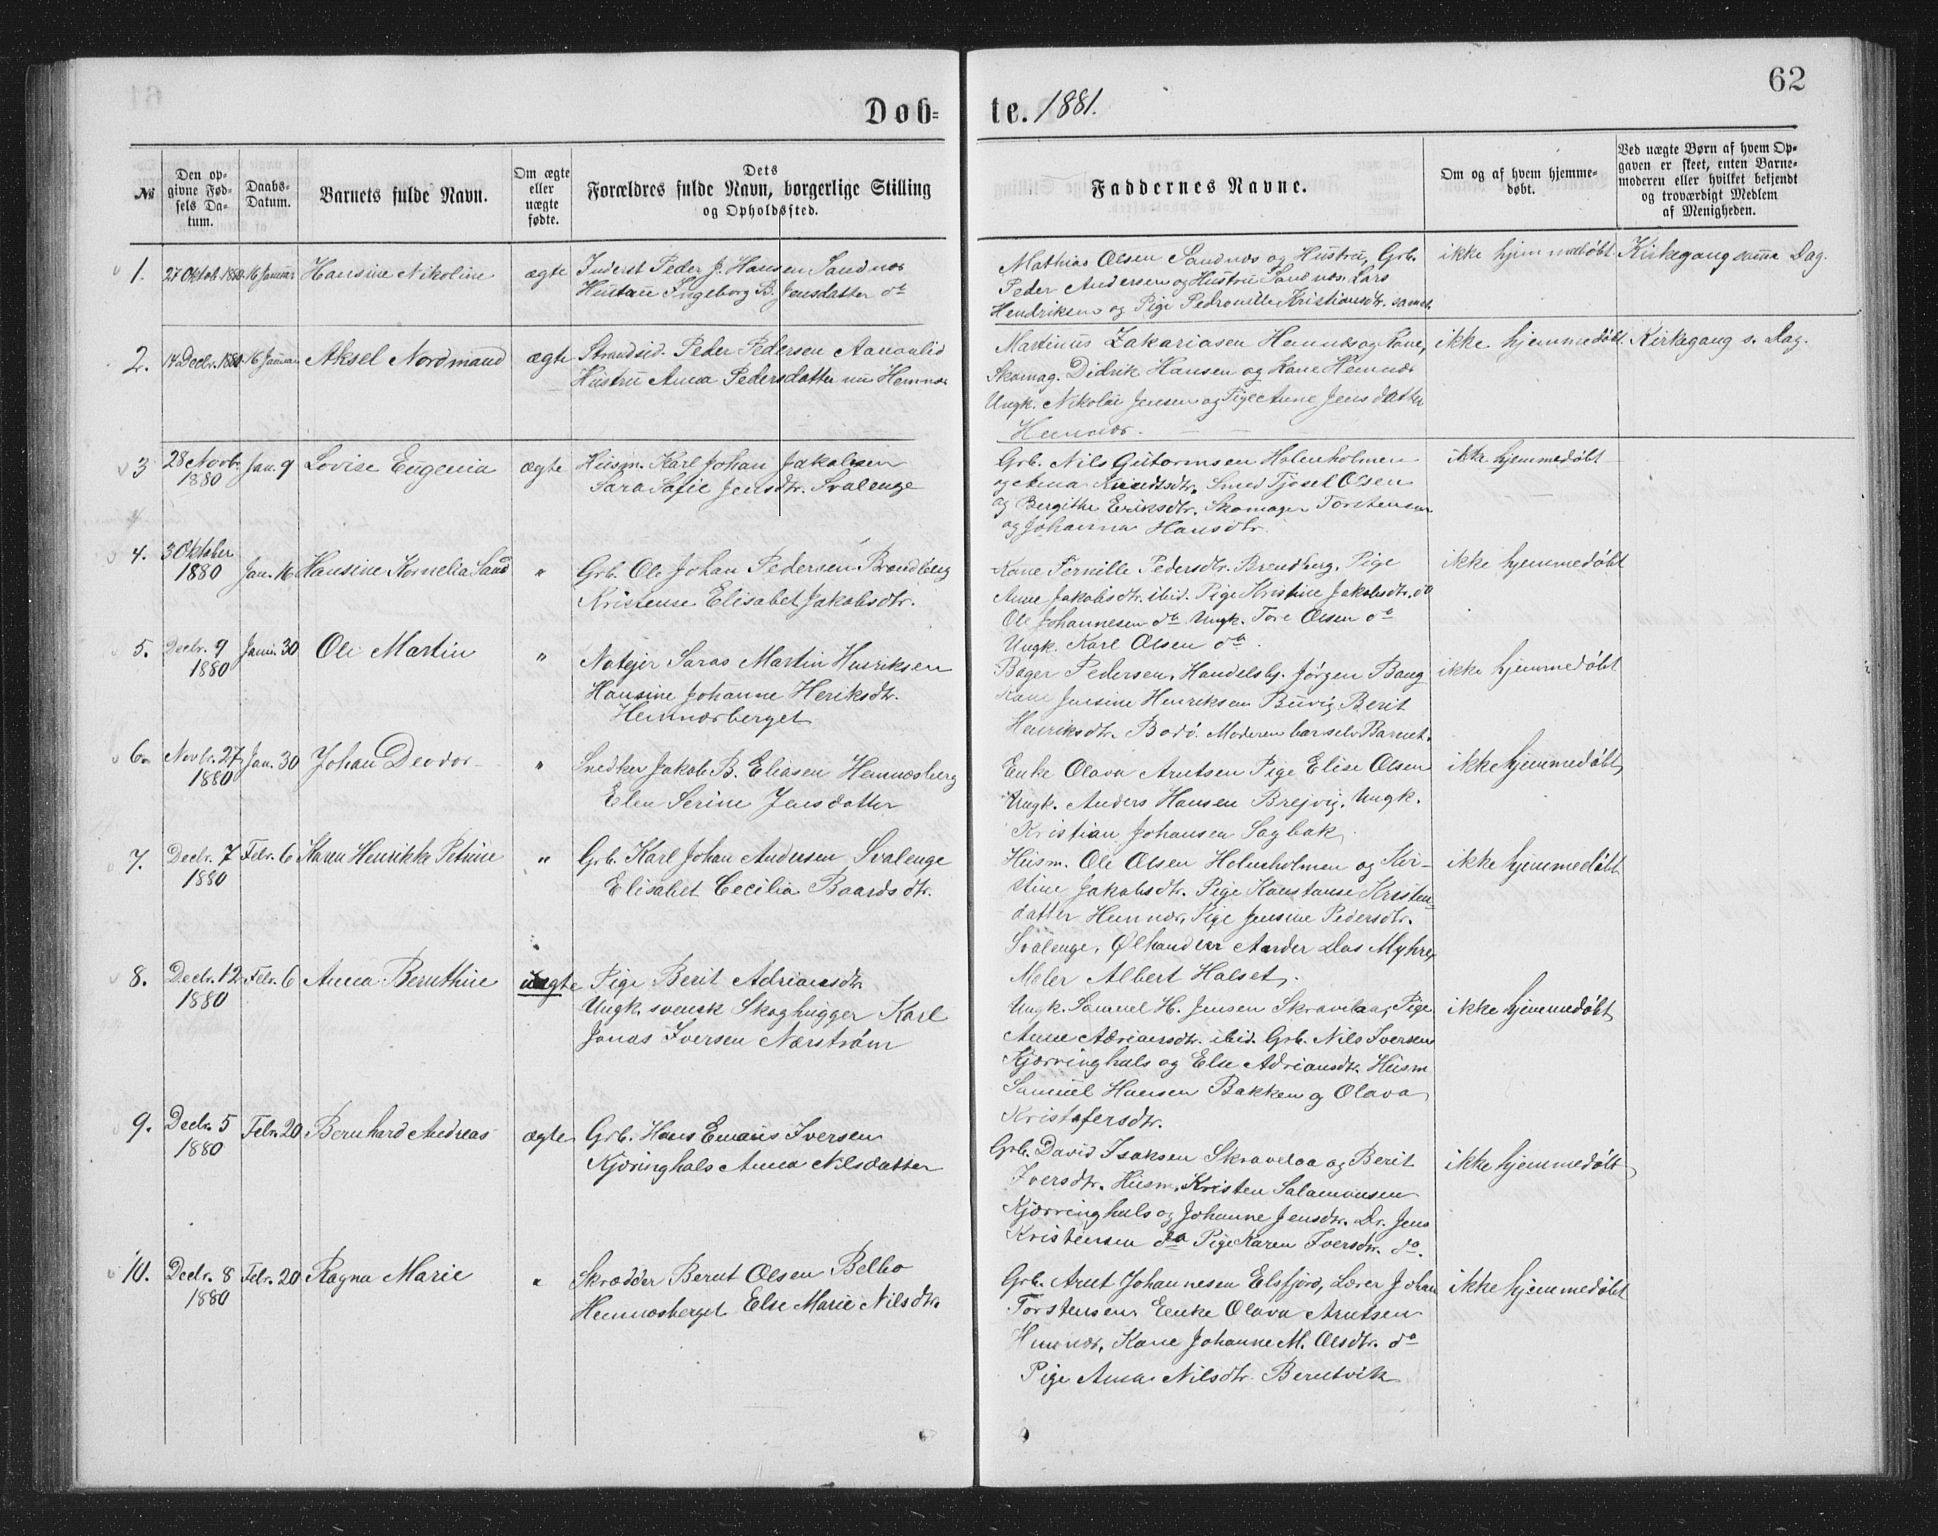 62
Døb- te. 1881.
№
Den opgivne Fødsels Datum.
Daabs-Datum.
Barnets fulde Navn.
Om ægte eller uægte fødte.
Dets Forældres fulde Navn, borgerlige Stilling og Opholdssted.
Faddernes Navne.
Om og af hvem hjemmedøbt.
Ved uægte Børn af hvem Opgaven er skeet, enten Barnemoderen eller hvilket bekjendt og troværdigt Medlem af Menigheden.
1. 27 Oktob. 1880 16 Januar Hansine Nikoline ægte Inderst Peder J. Hansen Sandnæs
Hustru Ingeborg B. Jensdatter do
Mathias Olsen Sandnæs og Hustru, Grb.
Peder Andersen og Hustru Sandnæs. Lars
Hendriksen og Pige Pedronille Kristiansdtr. samst.
ikke hjemmedøbt Kirkegang samme Dag.
2. 14 Decbr. 1880 16 Januar Aksel Nordmand ægte Strandsid. Peder Pedersen
Hustru Anna Pedersdatter nu Hemnæs
Martinus Zakariasen Hemnæs og Kone,
Skomag. Didrik Hansen og Kone Hemnæs
Ungk. Nikolai Jensen og Pige Anne Jensdatter
Hemnæs.
ikke hjemmedøbt Kirkegang s. Dag.
3 28 Novb. 1880 Jan. 9 Lovise Eugenia ægte Husm. Karl Johan Jakobsen
Sara Sofie Jensdtr. Svalenge
Grb. Nils Gutormsen Holmholmen
og Anna Knudsdtr. Smed Tjøsel Olsen
og Bergithe Eriksdtr. Skomager Torstensen
og Johanna Hansdtr.
ikke hjemmedøbt
4. 3 Oktober 1880 Jan. 16 Hansine Kornelia Sand " Grb. Ole Johan Pedersen Brendberg
Kristense Elisabet Jakobsdtr.
Kone Pernille Pedersdtr. Brendberg. Pige
Anne Jakobsdtr. ibid. Pige Kristine Jakobsdtr. do
Ole Johannesen do Ungk. Tore Olsen do
Ungk. Karl Olsen do.
ikke hjemmedøbt
5. Decbr. 9 1880 Janu. 30 Ole Martin " Notejer Saras Martin Henriksen
Hansine Johanne Heriksdtr.
Hemnæsberget
Bager Pedersen, Handelsbj. Jørgen Bang
Kone Jensine Henriksen Buvig Berit
Henriksdtr. Bodø. Moderen bar selv Barnet.
ikke hjemmedøbt
6. Novbr. 27 1880 Jan. 30 Johan Deodor " Snedker Jakob B. Eliasen Hemnæsberg
Elen Serine Jensdatter
Enke Olava Arntsen Pige Elise Olsen
Ungk. Anders Hansen Brejvig, Ungk.
Kristian Johansen Sagbak
ikke hjemmedøbt
7. Decbr. 7 1880 Febr. 6 Karen Henrikke Petrine " Grb. Karl Johan Andersen Svalenge
Elisabet Cecilia Baardsdtr.
Husm. Ole Olsen Holmholmen og Kir-
stine Jakobsdtr. Pige Konstanse Kristen-
datter Hemnæs, Pige Jensine Pedersdtr.
Svalenge, Ølhandler Andor Das Myhre,
Maler Albert Halset.
ikke hjemmedøbt
8. Decbr. 12 1880 Febr. 6 Anna Bernthine uægte Pige Berit Adriansdtr
Ungk. svensk Skoghugger Karl
Jonas Iversen Nærstrøm
Ungk. Samuel H. Jensen Skravelaa, Pige
Anne Adriansdtr. ibid. Grb. Nils Iversen
Kjærringhals og Else Adriansdtr. Husm
Samuel Hansen Bakken og Olava
Kristofersdtr.
ikke hjemmedøbt
9. Decbr. 5 1880 Febr. 20 Bernhard Andreas ægte Grb. Hans Emaus Iversen
Kjæringhals Anna Nilsdatter
Grb. David Isaksen Skravelaa og Berit
Iversdtr. Husm. Kristen Salamonsen
Kjærringhals og Johanne Jensdtr. Dr. Jens
Kristensen do Pige Karen Iversdtr. do.
ikke hjemmedøbt
10. Decbr. 8 1880 Febr. 20 Ragna Marie " Skrædder Bernt Olsen Belbo
Hemnæsberget Else Marie Nilsdtr.
Grb. Arnt Johannesen Elsfjord, Lærer Johan
Torstensen, Enke Olava Arntsen
Hemnæs, Kone Johanne M. Olsdtr. do
Pige Anna Nilsdtr. Berntvik
ikke hjemmedøbt